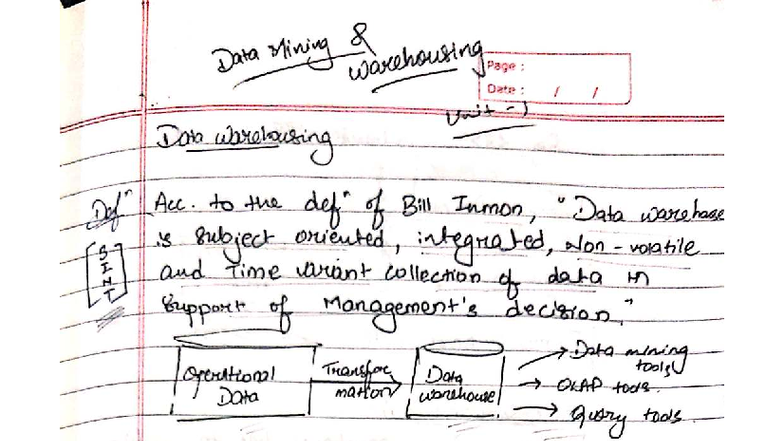 Data Mining & Warehousing
Page :
Date : / /
Unit - 1
Data Warehousing
Defⁿ
Acc. to the defⁿ of Bill Inmon, "Data warehase
SINT
is subject oriented, integrated, Non-volatile
and Time variant collection of data in
support of Management's decision."
Operational Data
Transfor mation
Data Warehouse
Data mining tools
OLAP tools.
Query tools.